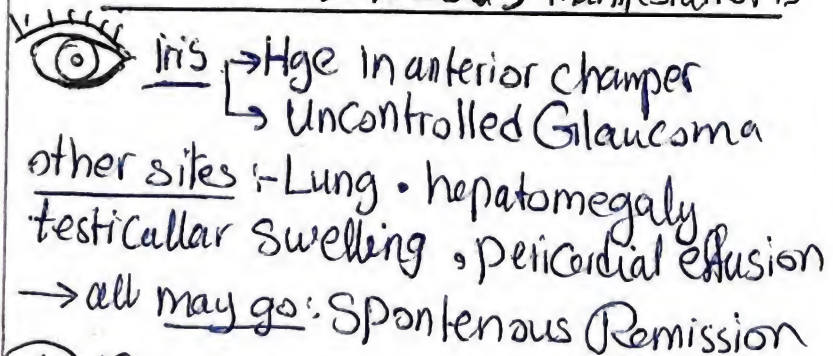 manifestations
iris → Hge in anterior champer
↳ Uncontrolled Glaucoma
other sites :- Lung • hepatomegaly
testicullar swelling , pericordial effusion
→ all may go : Spontenous Remission